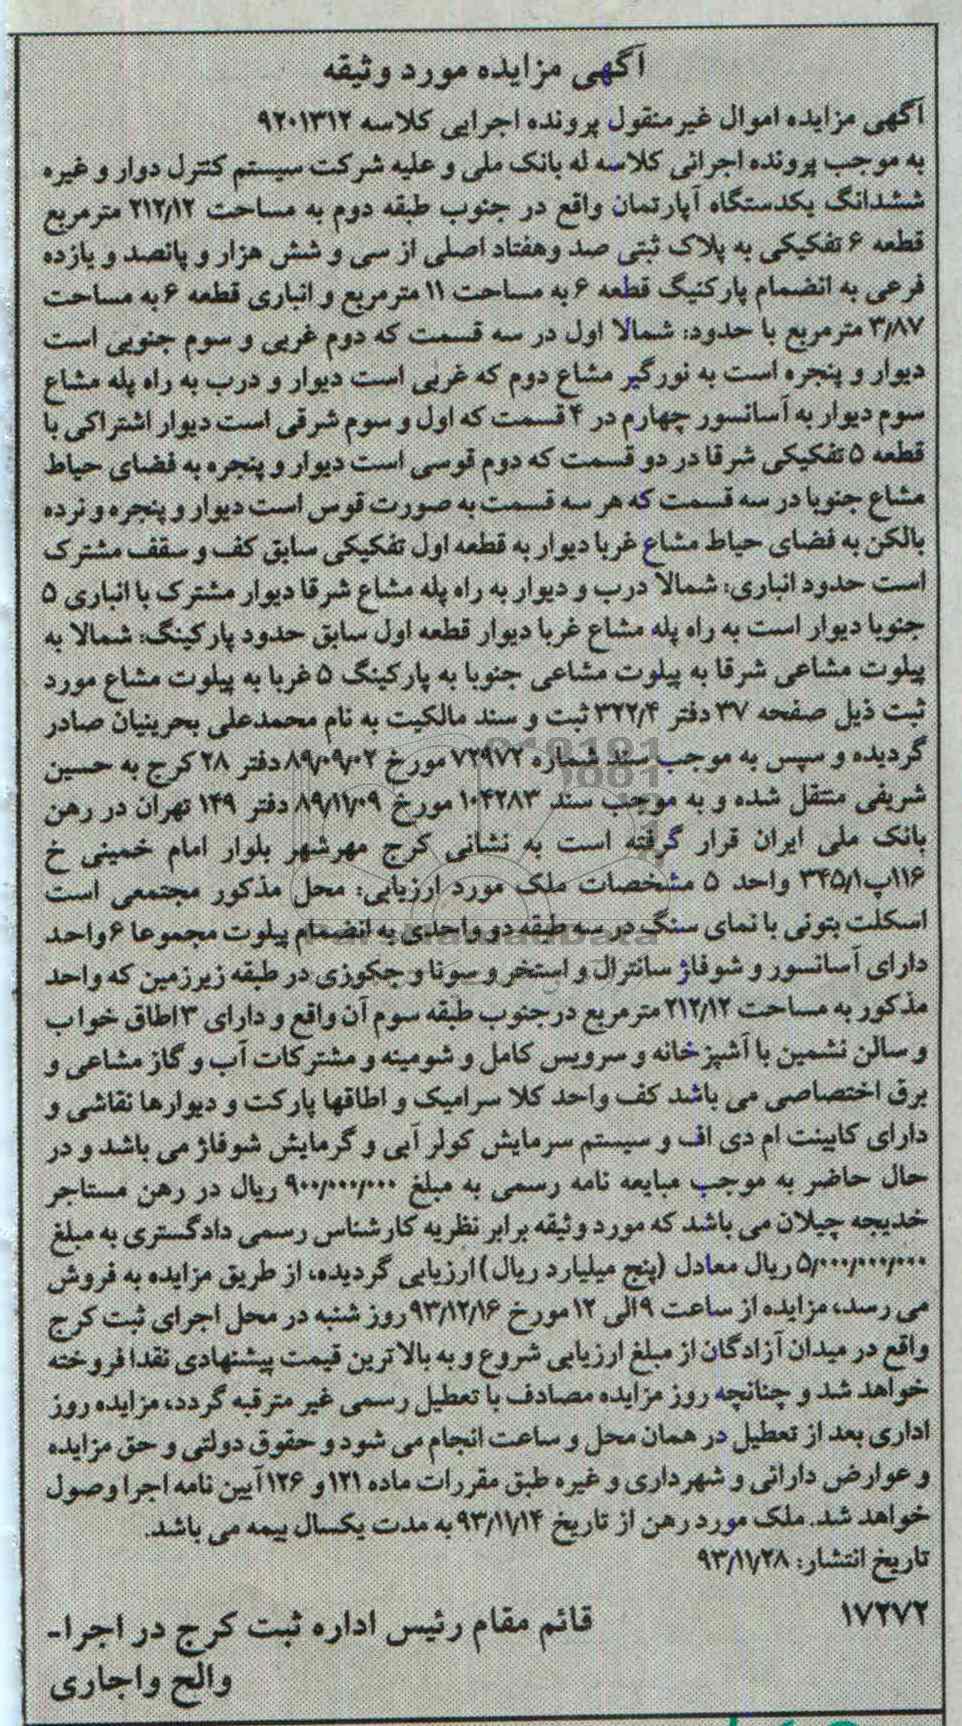 آگهی مزایده مورد وثیقه
آگهی مزایده اموال غیرمنقول پرونده اجرایی کلاسه ۹۲۰۱۳۱۲
به موجب پرونده اجرائی کلاسه له بانک ملی و علیه شرکت سیستم کنترل دوار و غیره
ششدانگ یکدستگاه آپارتمان واقع در جنوب طبقه دوم به مساحت ۲۱۲/۱۲ مترمربع
قطعه ۶ تفکیکی به پلاک ثبتی صد وهفتاد اصلی از سی و شش هزار و پانصد و یازده
فرعی به انضمام پارکنیگ قطعه ۶ به مساحت ۱۱ مترمربع و انباری قطعه ۶ به مساحت
۳/۸۷ مترمربع با حدود: شمالا اول در سه قسمت که دوم غربی و سوم جنوبی است
دیوار و پنجره است به نورگیر مشاع دوم که غربی است دیوار و درب به راه پله مشاع
سوم دیوار به آسانسور چهارم در ۴ قسمت که اول و سوم شرقی است دیوار اشتراکی با
قطعه ۵ تفکیکی شرقا در دو قسمت که دوم قوسی است دیوار و پنجره به فضای حیاط
مشاع جنوبا در سه قسمت که هر سه قسمت به صورت قوس است دیوار و پنجره و نرده
بالکن به فضای حیاط مشاع غربا دیوار به قطعه اول تفکیکی سابق کف و سقف مشترک
است حدود انباری: شمالا درب و دیوار به راه پله مشاع شرقا دیوار مشترک با انباری ۵
جنوبا دیوار است به راه پله مشاع غربا دیوار قطعه اول سابق حدود پارکینگ: شمالا به
پیلوت مشاعی شرقا به پیلوت مشاعی جنوبا به پارکینگ ۵ غربا به پیلوت مشاع مورد
ثبت ذیل صفحه ۳۷ دفتر ۳۲۲/۴ ثبت و سند مالکیت به نام محمدعلی بحرینیان صادر
گردیده و سپس به موجب سند شماره ۷۲۹۷۲ مورخ ۸۹/۰۹/۰۲ دفتر ۲۸ کرج به حسین
شریفی منتقل شده و به موجب سند ۱۰۴۲۸۳ مورخ ۸۹/۱۱/۰۹ دفتر ۱۴۹ تهران در رهن
بانک ملی ایران قرار گرفته است به نشانی کرج مهرشهر بلوار امام خمینی خ
۱۱۶پ۳۴۵/۱ واحد ۵ مشخصات ملک مورد ارزیابی: محل مذکور مجتمعی است
اسکلت بتونی با نمای سنگ در سه طبقه دو واحدی به انضمام پیلوت مجموعا ۶ واحد
دارای آسانسور و شوفاژ سانترال و استخر و سونا و جکوزی در طبقه زیرزمین که واحد
مذکور به مساحت ۲۱۲/۱۲ مترمربع در جنوب طبقه سوم آن واقع و دارای ۳ اطاق خواب
و سالن نشمین با آشپزخانه و سرویس کامل و شومینه و مشترکات آب و گاز مشاعی و
برق اختصاصی می باشد کف واحد کلا سرامیک و اطاقها پارکت و دیوارها نقاشی و
دارای کابینت ام دی اف و سیستم سرمایش کولر آبی و گرمایش شوفاژ می باشد و در
حال حاضر به موجب مبایعه نامه رسمی به مبلغ ۹۰۰/۰۰۰/۰۰۰ ریال در رهن مستاجر
خدیجه چیلان می باشد که مورد وثیقه برابر نظریه کارشناس رسمی دادگستری به مبلغ
۵/۰۰۰/۰۰۰/۰۰۰ ریال معادل (پنج میلیارد ریال) ارزیابی گردیده، از طریق مزایده به فروش
می رسد، مزایده از ساعت ۹ الی ۱۲ مورخ ۹۳/۱۲/۱۶ روز شنبه در محل اجرای ثبت کرج
واقع در میدان آزادگان از مبلغ ارزیابی شروع و به بالاترین قیمت پیشنهادی نقدا فروخته
خواهد شد و چنانچه روز مزایده مصادف با تعطیل رسمی غیر مترقبه گردد، مزایده روز
اداری بعد از تعطیل در همان محل و ساعت انجام می شود و حقوق دولتی و حق مزایده
و عوارض دارائی و شهرداری و غیره طبق مقررات ماده ۱۲۱ و ۱۲۶ آیین نامه اجرا وصول
خواهد شد. ملک مورد رهن از تاریخ ۹۳/۱۱/۱۴ به مدت یکسال بیمه می باشد.
تاریخ انتشار: ۹۳/۱۱/۲۸
۱۷۲۷۲ قائم مقام رئیس اداره ثبت کرج در اجرا-
والح واجاری